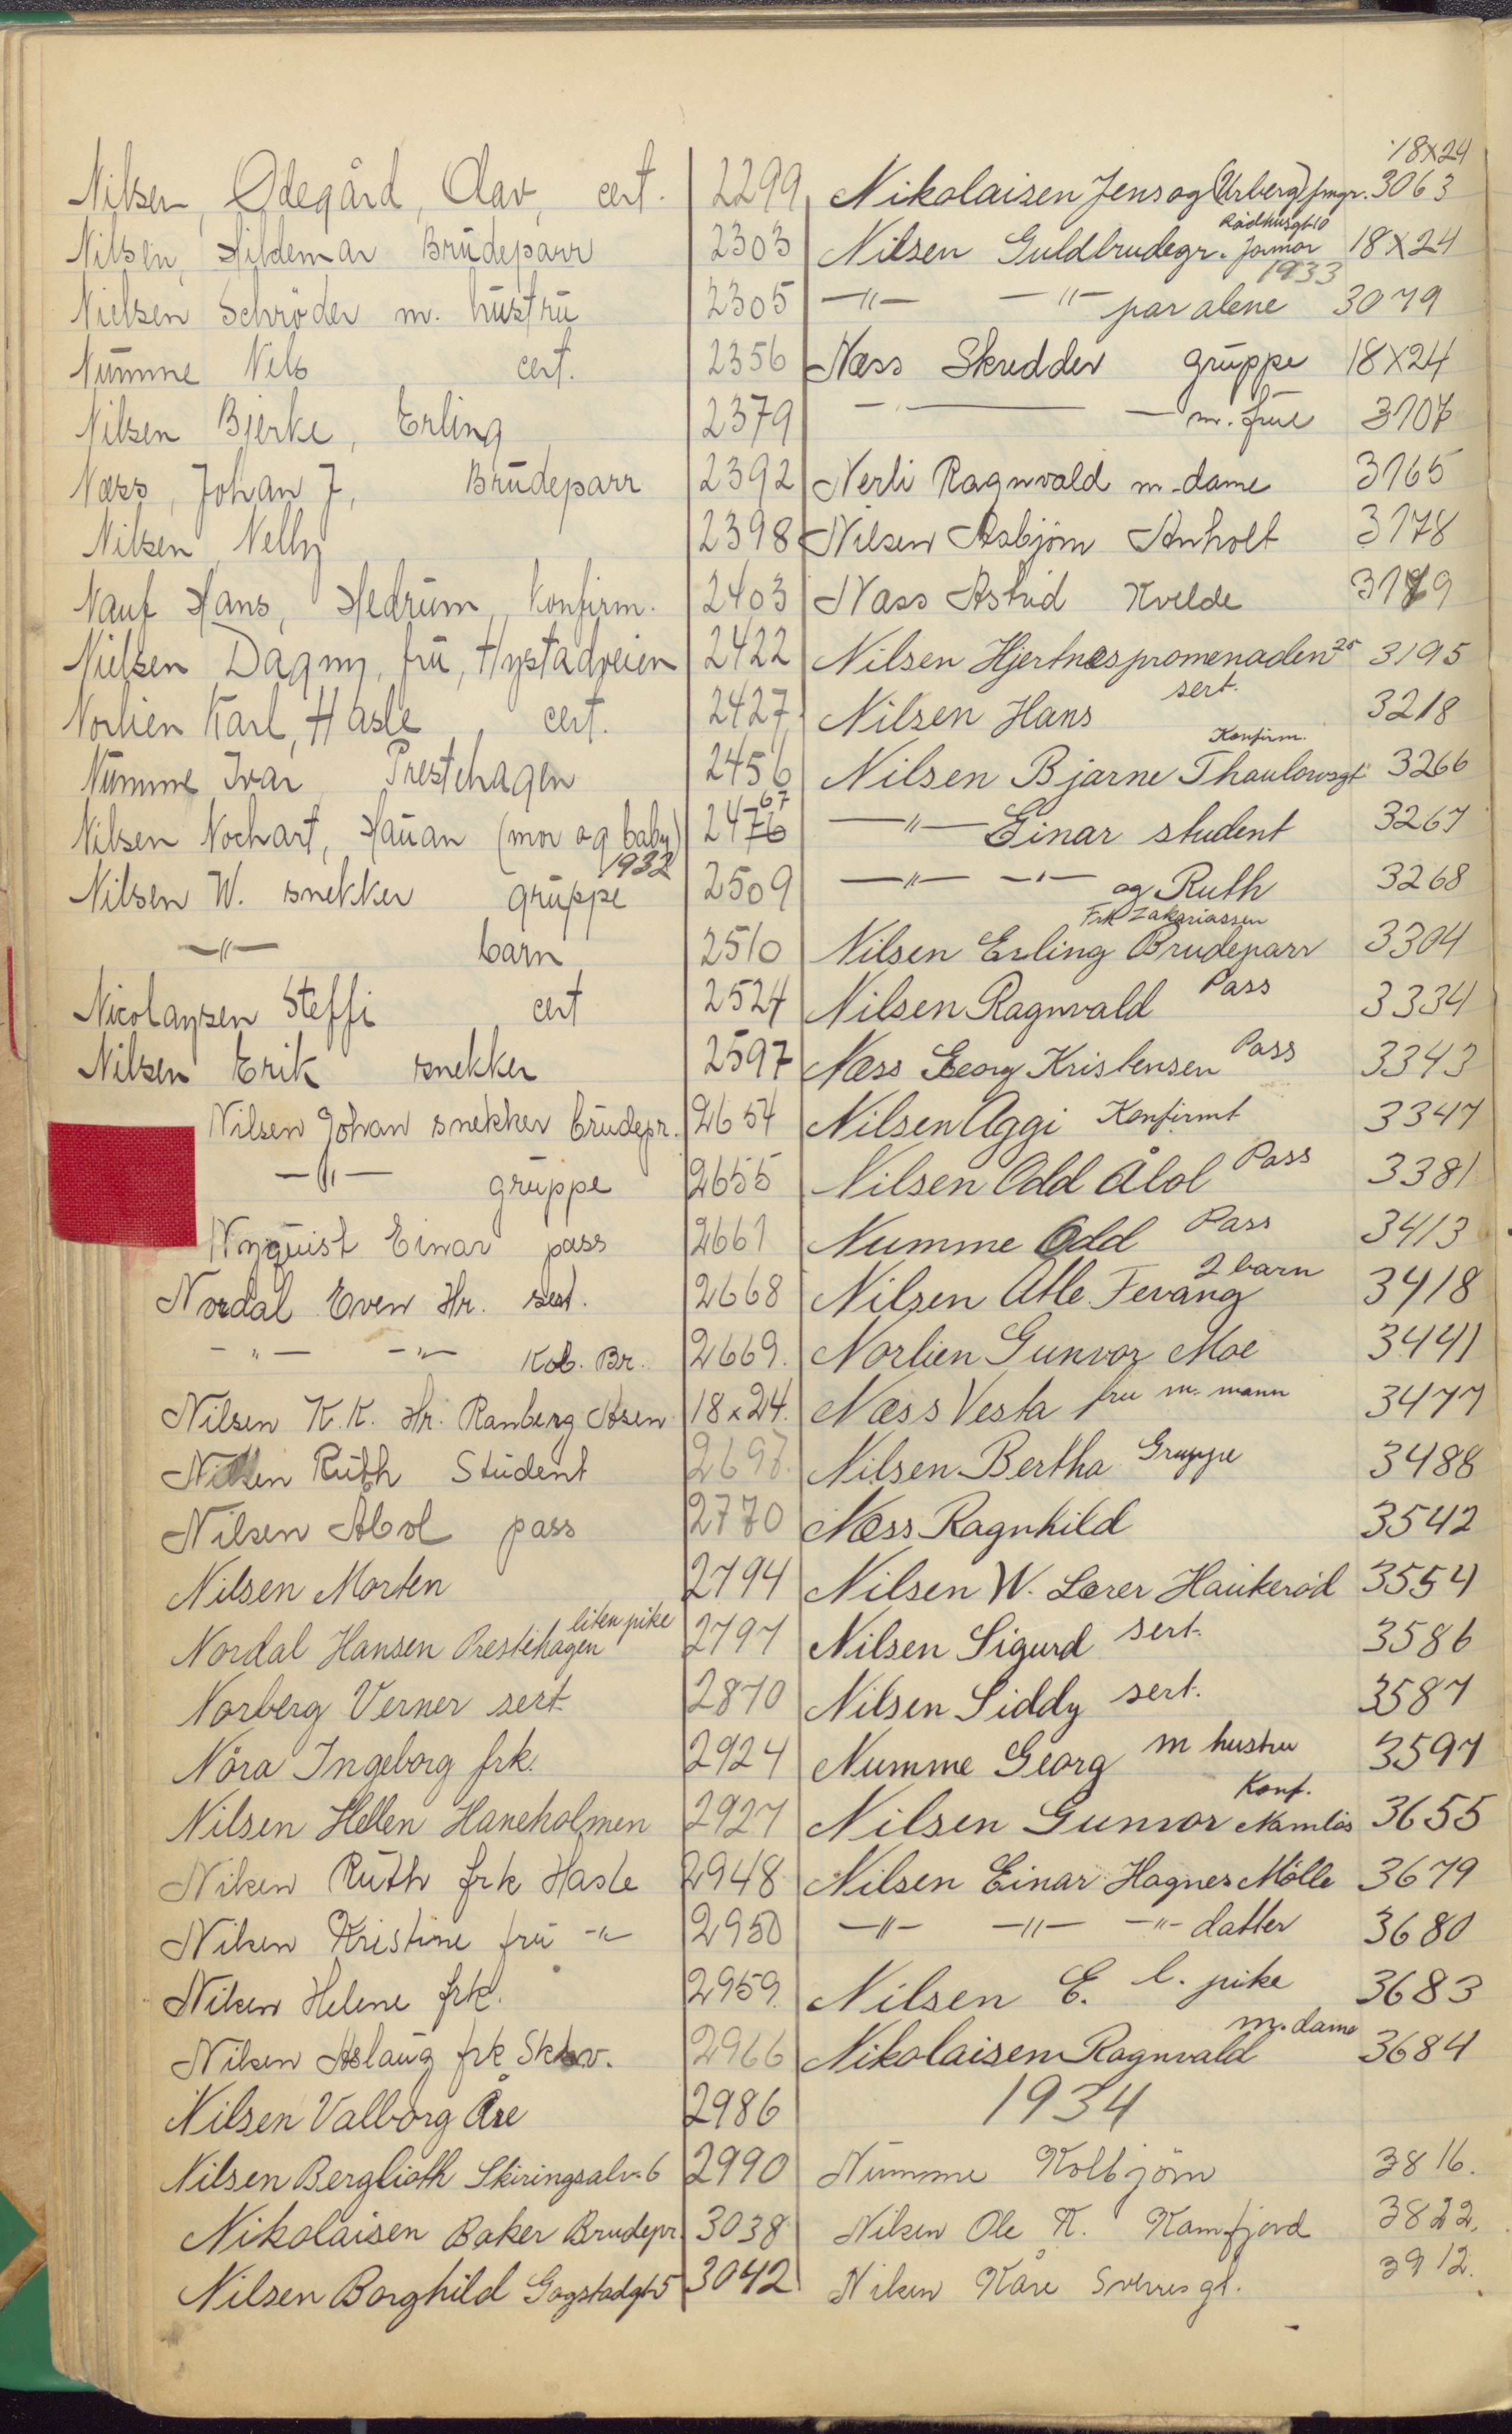 Nilsen, Ødegård, Olav, cert. 2299
Nilsen, Hildemar Brudeparr 2303
Nielsen Schrøder m. hustru 2305
Numme Nels cert. 2356
Nilsen Bjerke, Erling 2379
Næss, Johan J, Brudeparr 2392
Nilsen Nelly 2398
Nauf Hans, Hedrum, konfirm. 2403
Nielsen Dagny, fru, Hystadveien 2422
Norlien Karl, Hasle cert. 2427
Numme Ivar, Prestehagen 2456
Nilsen Nochart, Hauan (mor og baby) 2476 67
1932
Nilsen W. snekker gruppe 2509
—"— barn 2510
Nicolaysen Steffi cert 2524
Nilsen Erik snekker 2597
Nilsen Johan snekker brudepr. 2654
—"— gruppe 2655
Nyquist Einar pass 2661
Nordal Even Hr. sert. 2668
—"— —"— Kab. Br. 2669.
Nilsen K.K. Hr. Ranberg Åsen 18x24.
Nilsen Ruth Student 2697.
Nilsen Abol pass 2770
Nilsen Morten 2794
Nordal Hansen Prestehagen liten pike 2797
Norberg Verner sert. 2870
Nöra Ingeborg frk. 2924
Nilsen Hellen Haneholmen 2927
Nilsen Ruth frk Hasle 2948
Nilsen Kristine fru -"- 2950
Nilsen Helene frk. 2959.
Nilsen Aslaug frk 2966
Nilsen Valborg Åre 2986
Nilsen Berglioth Skiringsalv. 6 2990
Nikolaisen Baker Brudepr. 3038
Nilsen Borghild Gogstadgt 5 3042
18X24
Nikolaisen Jens og (Urberg) fmgr. 3063
Rådhusgt 10
Nilsen Guldbrudegr. Jamor 18X24
1933
—"— —"— par alene 3079
Næss Skredder gruppe 18X24
— — m. frue 3107
Nerli Ragnvald m. dame 3165
Nilsen Asbjörn Anholt 3178
Næss Astrid Kvelde 3179
Nilsen Hjertnespromenaden 25 3195
sert.
Nilsen Hans 3218
Konfirm.
Nilsen Bjarne Thaulowsgt 3266
—"— Einar student 3267
—"— —"— og Ruth 3268
Frk Zakariassen
Nilsen Erling Brudeparr 3304
Nilsen Ragnvald Pass 3334
Næss Georg Kristensen Pass 3343
Nilsen Aggi Konfirmt 3347
Nilsen Odd Ålol Pass 3381
Numme Odd Pass 3413
2 barn
Nilsen Atle Fevang 3418
Norlien Gunvor Moe 3441
Næss Vesta fru m. mann 3477
Nilsen Bertha Gruppe 3488
Næss Ragnhild 3542
Nilsen W. Lærer Haukeröd 3554
Nilsen Sigurd sert. 3586
Nilsen Siddy sert. 3587
Numme Georg m hustru 3597
Konf.
Nilsen Gunvor Namløs 3655
Nilsen Einar Hagnes Mölle 3679
—"— —"— —"— datter 3680
Nilsen E. l. pike 3683
m. dame
Nikolaisen Ragnvald 3684
1934
Numme Kolbjörn 3816.
Nilsen Ole K. Kamfjord 3822.
Nilsen Kåre Sverresgt. 3912.